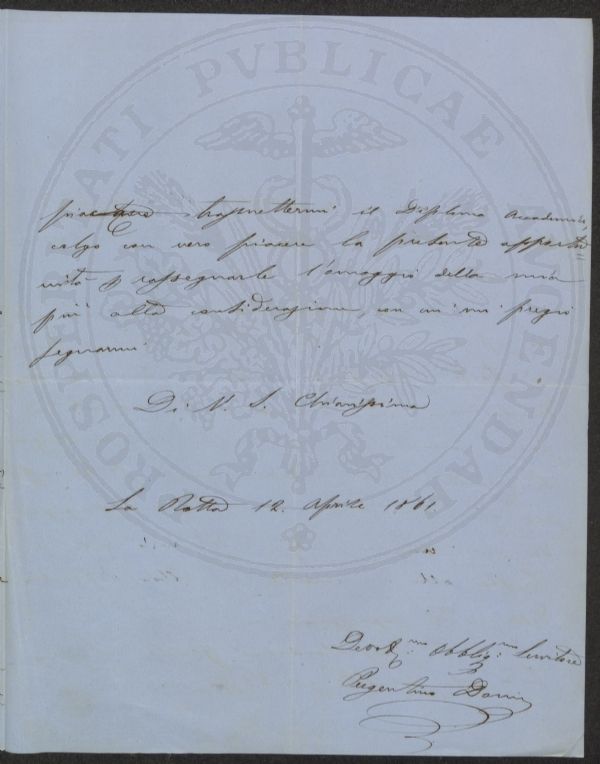 PROSPERITATI PVBLICAE AVGENDAE
piacere trasmettermi il Diploma Accademico,
colgo con vero piacere la presente opportu=
nità p rassegnarle l'omaggio della mia
più alta considerazione con cui mi pregio
segnarmi
Di V. S. Chiarissima
La Rotta 12. Aprile 1861.
Devot.mo Obblig.mo Servitore
Dario